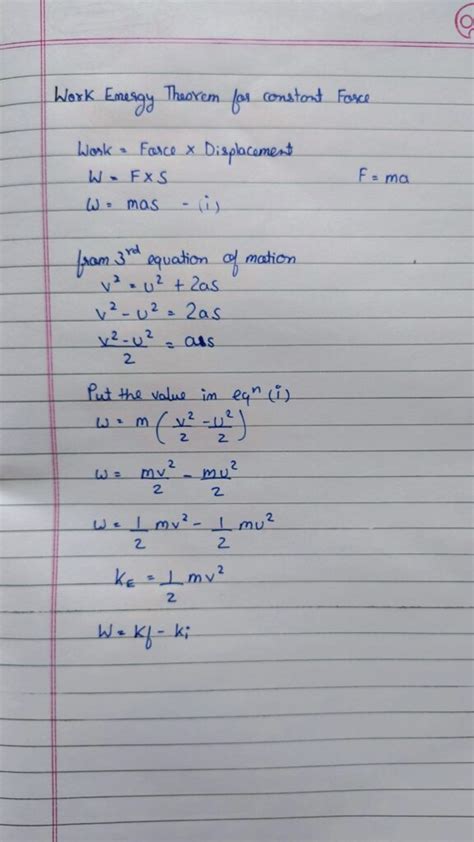 Work Energy Theorem for constant Force
Work = Force × Displacement
W = F×S F = ma
W = mas - (i)
from 3rd equation of motion
v² = u² + 2as
v² - u² = 2as
v² - u² / 2 = as
Put the value in eqⁿ (i)
W = m ( v²/2 - u²/2 )
W = mv²/2 - mu²/2
W = 1/2 mv² - 1/2 mu²
KE = 1/2 mv²
W = Kf - Ki